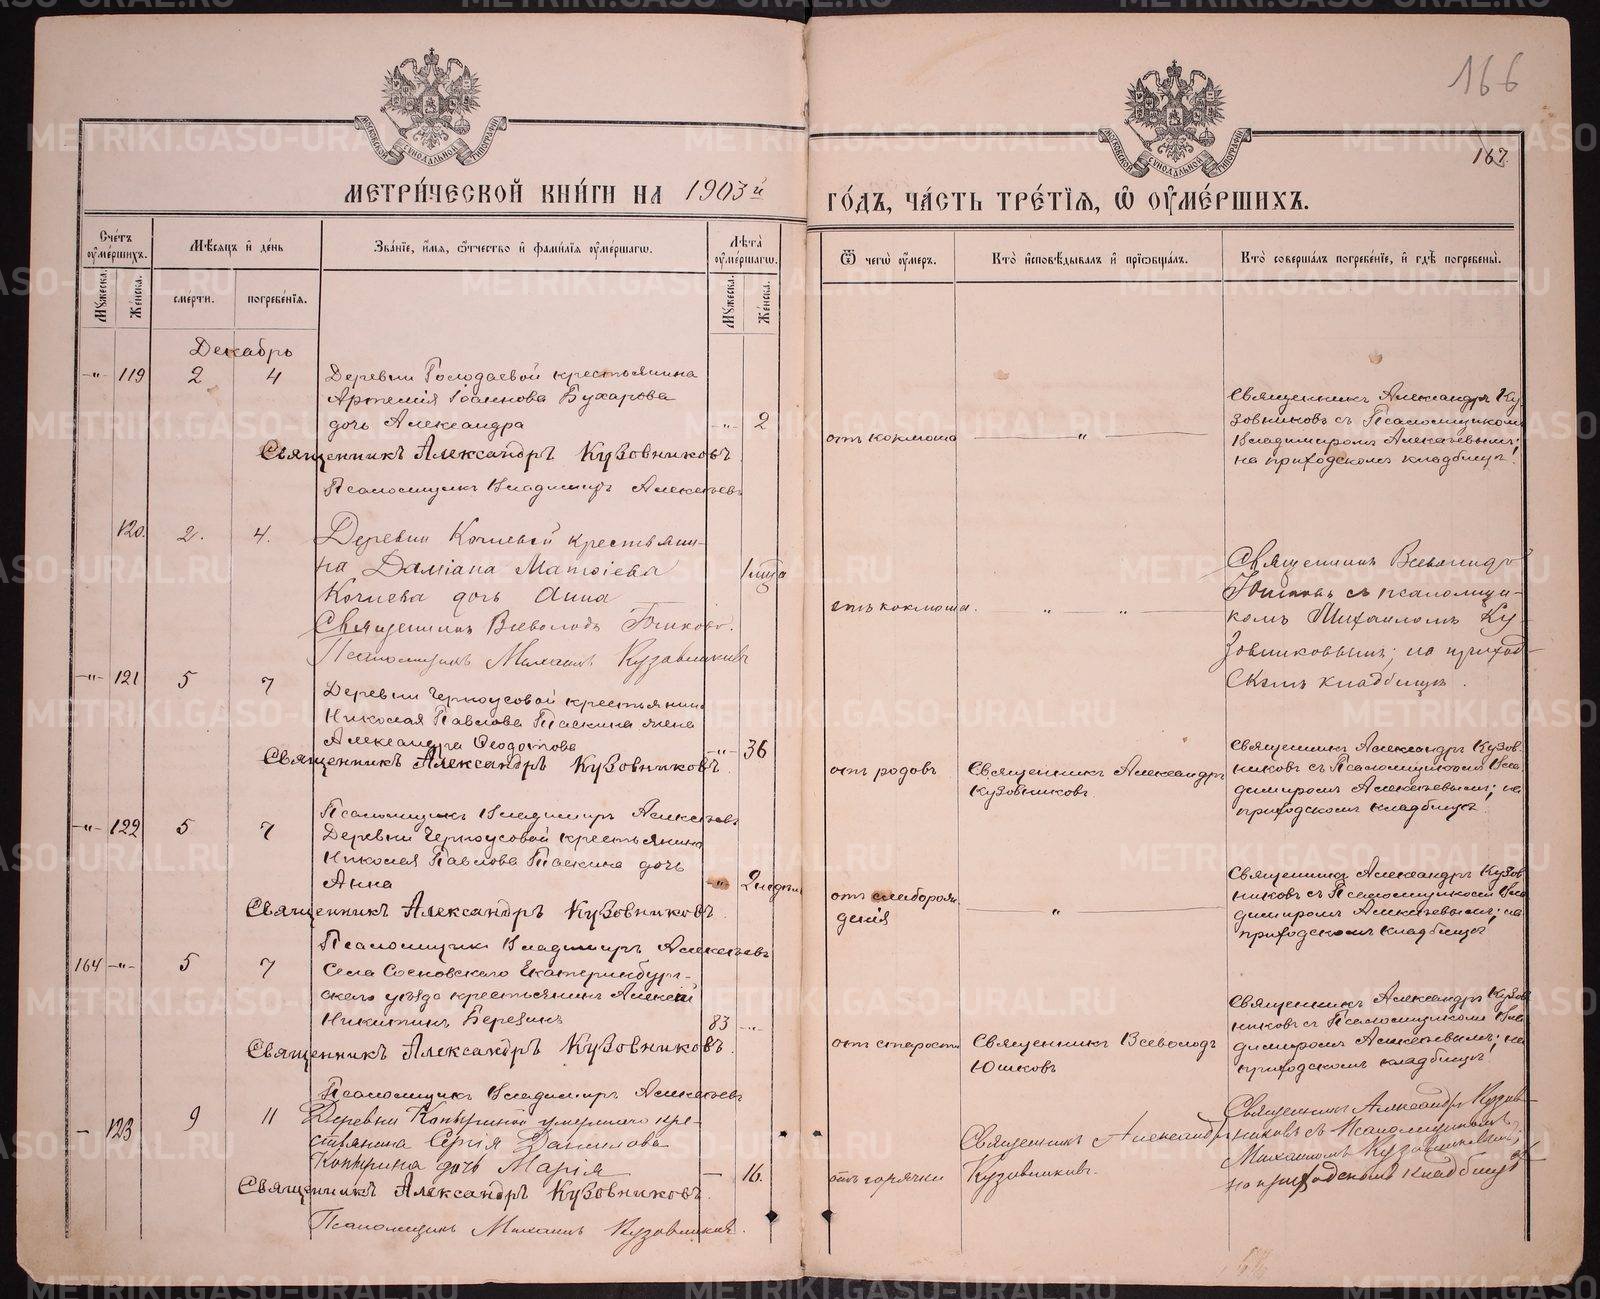 166
167
МЕТРИ́ЧЕСКОЙ КНИ́ГИ НА 1903й
ГО́ДЪ, ЧА́СТЬ ТРЕ́ТІЯ, Ѽ ОУМЕ́РШИХЪ.
Сче́тъ оумершихъ.
Мꙋжеска.
Же́нска.
Мѣсяцъ и де́нь
сме́рти.
погребе́нїя.
Зва́нїе, и́мя, ѻ҆́тчество и фами́лїя оуме́ршагѡ.
Лѣта̀ оуме́ршагѡ.
Мꙋжеска.
Же́нска.
Ѿ чегѡ̀ оу́меръ.
Кто̀ исповѣ́дывалъ и прїѡбща́лъ.
Кто̀ соверша́лъ погребе́нїе, и гдѣ̀ погребены̀.
Декабрь
-"- 119 2 4
Деревни Голодаевой крестьянина
Артемія Іоаннова Бухарова
дочь Александра -"- 2
Священникъ Александръ Кузовниковъ.
Псаломщикъ Владиміръ Алексѣевъ
отъ коклюша
"
Священникъ Александръ Ку-
зовниковъ съ Псаломщикомъ
Владиміромъ Алексѣевымъ;
на приходскомъ кладбищѣ!
120. 2. 4.
Деревни Кочневой крестьяни-
на Даміана Матѳіева
Кочнева дочь Анна
Священникъ Всеволодъ Юшковъ.
Псаломщикъ Михаилъ Кузовниковъ
отъ коклюша.
" "
Священникъ Всеволодъ
Юшковъ съ псаломщи-
комъ Михаиломъ Ку-
зовниковымъ; на приход-
скомъ кладбищѣ.
-"- 121 5 7
Деревни Черноусовой крестьянина
Николая Павлова Пласкина жена
Александра Ѳеодотова -"- 36
Священникъ Александръ Кузовниковъ.
Псаломщикъ Владиміръ Алексѣевъ
отъ родовъ
Священникъ Александръ
Кузовниковъ
Священникъ Александръ Кузов-
никовъ съ Псаломщикомъ Вла-
диміромъ Алексѣевымъ; на
приходскомъ кладбищѣ!
-"- 122 5 7
Деревни Черноусовой крестьянина
Николая Павлова Пласкина дочь
Анна -"- 2 недѣли
Священникъ Александръ Кузовниковъ.
Псаломщикъ Владиміръ Алексѣевъ
отъ слаборож-
денія
"
Священникъ Александръ Кузов-
никовъ съ Псаломщикомъ Вла-
диміромъ Алексѣевымъ; на
приходскомъ кладбищѣ!
164 -"- 5 7
Села Сосновскаго Екатеринбург-
скаго уѣзда крестьянинъ Алексѣй
Никитинъ Березинъ 83 -"-
Священникъ Александръ Кузовниковъ.
Псаломщикъ Владиміръ Алексѣевъ
отъ старости
Священникъ Всеволодъ
Юшковъ
Священникъ Александръ Кузов-
никовъ съ Псаломщикомъ Вла-
диміромъ Алексѣевымъ; на
приходскомъ кладбищѣ!
- 123 9 11
Деревни Копыриной умершаго кре-
стьянина Сергія Данилова
Копырина дочь Марія - 16.
Священникъ Александръ Кузовниковъ.
Псаломщикъ Михаилъ Кузовниковъ.
отъ горячки
Священникъ Александръ
Кузовниковъ.
Священникъ Александръ Кузов-
никовъ съ Псаломщикомъ
Михаиломъ Кузовниковымъ;
на приходскомъ кладбищѣ
METRIKI.GASO-URAL.RU